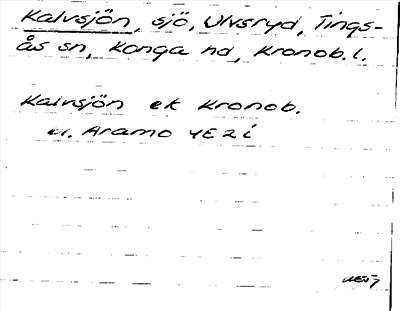 Kalvsjön, sjö, Ulvsryd, Tings-
ås sn, Konga hd, Kronob.l.
Kalvsjön ek Kronob.
Aramo 4E2i